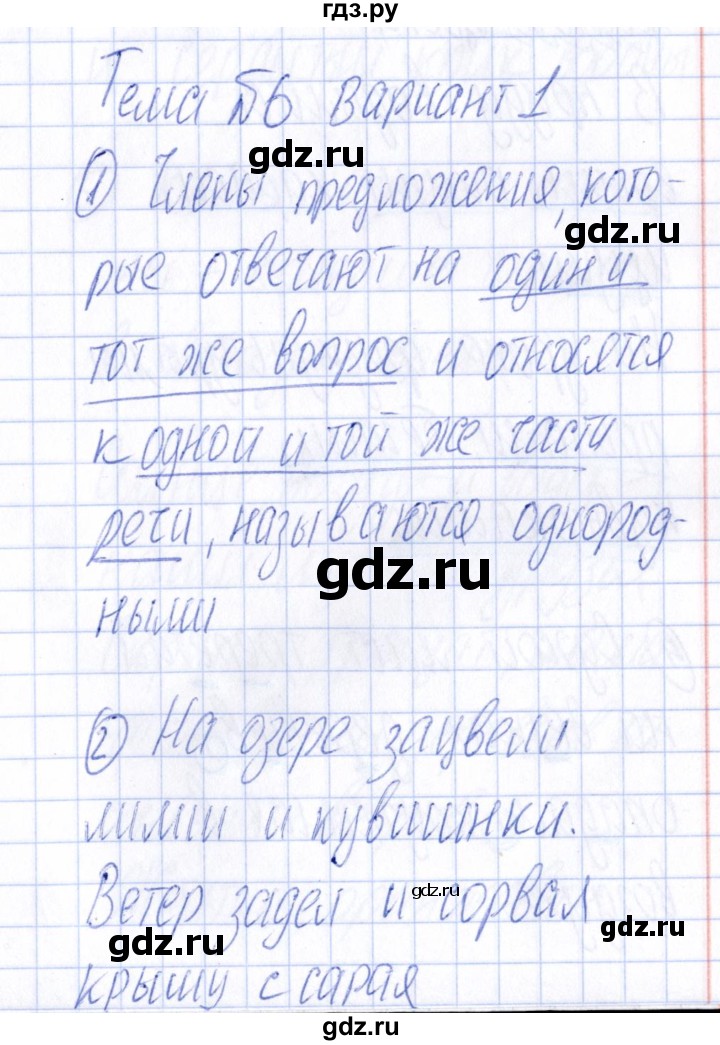 гдз.ру
Тема №6 Вариант 1
gdz.ru
① Члены предложения, кото-
gdz.ru
рые отвечают на один и
тот же вопрос и относятся
к одной и той же части
речи, называются однород-
gdz.ru
ными
② На озере зацвели
лилии и кувшинки.
gdz.ru
Ветер задел и сорвал
gdz.ru
gdz.ru
крышу с сарая
gdz.ru